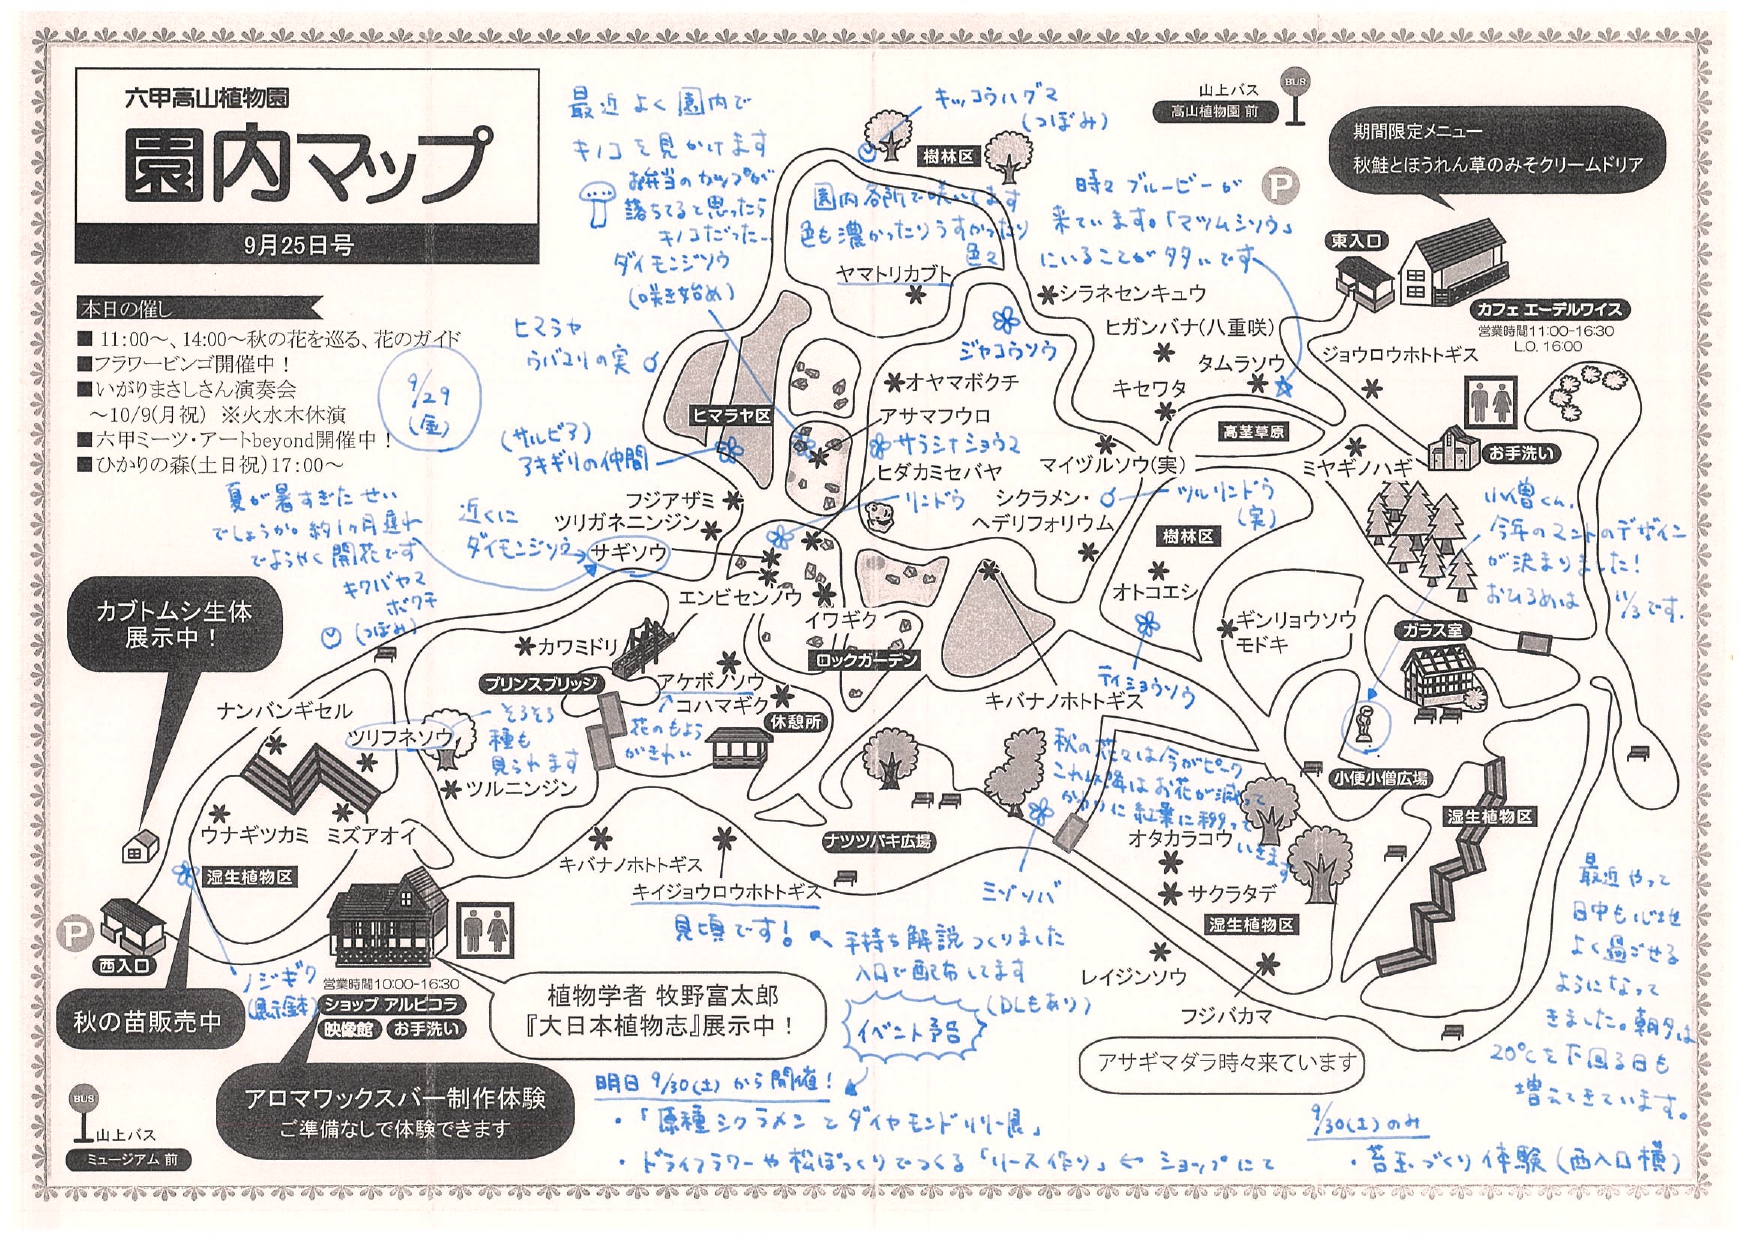 六甲高山植物園
園内マップ
9月25日号
本日の催し
■ 11:00～、14:00～秋の花を巡る、花のガイド
■フラワービンゴ開催中！
■いがりまさしさん演奏会
～10/9(月祝) ※火水木休演
■六甲ミーツ・アートbeyond開催中！
■ひかりの森(土日祝)17:00～
9/29
(金)
最近よく園内で
キノコを見かけます
お弁当のカップが
落ちてると思ったら
キノコだった…
ダイモンジソウ
(咲き始め)
キッコウハグマ
(つぼみ)
樹林区
園内各所で咲いてます
色も濃かったりうすかったり
色々
ヤマトリカブト
山上バス
高山植物園 前
BUS
P
期間限定メニュー
秋鮭とほうれん草のみそクリームドリア
時々ブルービーが
来ています。「マツムシソウ」
にいることが多いです
東入口
カフェ エーデルワイス
営業時間11:00-16:30
L.O. 16:00
シラネセンキュウ
ヒガンバナ(八重咲)
タムラソウ
キセワタ
ジョウロウホトトギス
ジャコウソウ
ヒマラヤ
ウバユリの実
オヤマボクチ
アサマフウロ
サラシナショウマ
ヒダカミセバヤ
リンドウ
ヒマラヤ区
(サルビア)
アキギリの仲間
高茎草原
マイヅルソウ(実)
ミヤギノハギ
お手洗い
シクラメン・
ヘデリフォリウム
ツルリンドウ
(実)
樹林区
オトコエシ
小僧くん、
今年のマントのデザイン
が決まりました！
おひろめは 11/3です。
フジアザミ
ツリガネニンジン
サギソウ
近くに
ダイモンジソウ
夏が暑すぎたせい
でしょうか。約1ヶ月遅れ
でようやく開花です
キクバヤマ
ボクチ
(つぼみ)
エンビセンノウ
イワギク
ロックガーデン
カブトムシ生体
展示中！
カワミドリ
プリンスブリッジ
アケボノソウ
コハマギク
花のもよう
がきれい
休憩所
キバナノホトトギス
テイショウソウ
ギンリョウソウ
モドキ
ガラス室
小便小僧広場
湿生植物区
ナンバンギセル
ツリフネソウ
そろそろ
種も
見られます
ツルニンジン
ウナギツカミ
ミズアオイ
湿生植物区
秋の花々は今がピーク
これ以降はお花が減って
かわりに紅葉に移って
いきます
オタカラコウ
サクラタデ
湿生植物区
ナツツバキ広場
キバナノホトトギス
キイジョウロウホトトギス
見頃です！
手持ち解説つくりました
入口で配布してます
(DLもあり)
ミゾソバ
レイジンソウ
フジバカマ
アサギマダラ時々来ています
最近やって
日中も心地
よく過ごせる
ようになって
きました。朝夕は
20℃を下回る日も
増えてきています。
P
西入口
秋の苗販売中
ノジギク
(展示鉢)
営業時間10:00-16:30
ショップ アルピコラ
映像館
お手洗い
植物学者 牧野富太郎
『大日本植物志』展示中！
アロマワックスバー制作体験
ご準備なしで体験できます
BUS
山上バス
ミュージアム 前
イベント予告
明日 9/30(土)から開催！
・「原種シクラメンとダイヤモンドリリー展」
・ドライフラワーや松ぼっくりでつくる「リース作り」← ショップにて
9/30(土)のみ
・苔玉づくり体験(西入口横)